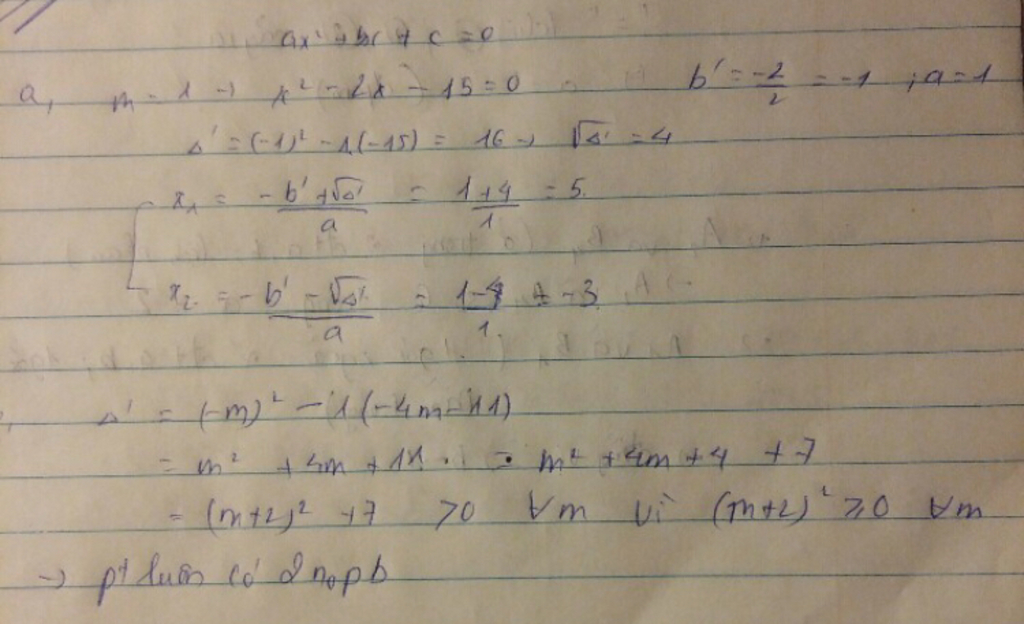 ax² + bx + c = 0
a, m = 1 → x² - 2x - 15 = 0 b' = -2/2 = -1 ; a = 1
Δ' = (-1)² - 1(-15) = 16 → √Δ' = 4
x₁ = -b' + √Δ' / a = 1+4 / 1 = 5
x₂ = -b' - √Δ' / a = 1-4 / 1 = -3
Δ' = (-m)² - 1(-4m - 11)
= m² + 4m + 11 = m² + 4m + 4 + 7
= (m+2)² + 7 > 0 ∀m vì (m+2)² ≥ 0 ∀m
→ pt luôn có 2 n₀ pb